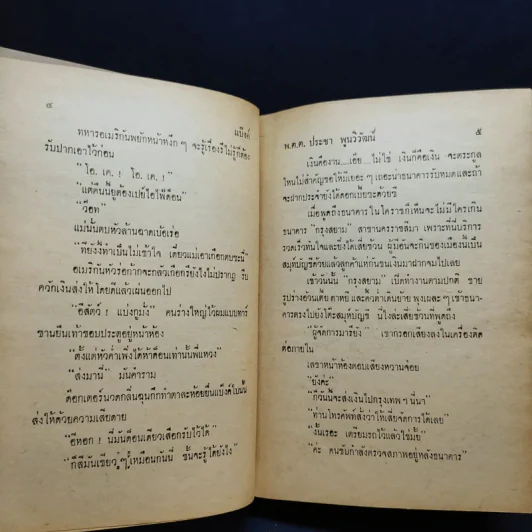 ๔ แบ๊งค์
ทหารอเมริกันพยักหน้าหงึก ๆ จะรู้เรื่องรึไม่รู้ก็ต้อง
รับปากเอาไว้ก่อน
"โอ. เค. ! โอ. เค. !"
"แต่คืนนี้ยูต้องเปย์ไอไฟ้ด็อน"
"ว็อท"
แม่นั่นตบหัวล้านฉาดเบ้อเร่อ
"ที่ยังงี้ทำเป็นไม่เข้าใจ เดี๋ยวแม่เอาเกือกตบซะนี่"
อเมริกันหัวร่อก๊ากจะกลัวเกือกรึยังไงไม่ปรากฏ รีบ
ควักเงินส่งให้ โดยดีแล้วเผ่นออกไป
"อีสัตว์ ! แบ่งกูมั่ง" คนร่างใหญ่ไว้ผมแบบทาร์
ซานยืนเท้าขอบประตูอยู่หน้าห้อง
"ตั้งแต่หัวค่ำเพิ่งได้ห้าด็อนเท่านั้นพี่แหวง"
"ส่งมานี่" มันคำราม
ด็อกเตอร์นวดกลิ่นฉุนกึกทำตาละห้อยยื่นแบ๊งค์ใบนั้น
ส่งให้ด้วยความเสียดาย
"อีหอก ! นี่มันด็อนเดียวเสือกรับไว้ได้"
"ก็สีมันเขียว ๆ เหมือนกันนี่ ชั้นจะรู้ได้ยังไง"
พ.ต.ต. ประชา พูนวิวัฒน์ ๕
เงินคืองาน....เอ๊ย....ไม่ใช่ เงินก็คือเงิน จะตระกูล
ไหนไม่สำคัญขอให้มีเยอะ ๆ เถอะน่าธนาคารรับหมดและถ้า
จะฝากประจำยังได้ดอกเบี้ยซะด้วยซี
เมื่อพูดถึงธนาคารในโคราชก็เห็นจะไม่มีใครเกิน
ธนาคาร "กรุงสยาม" สาขานครราชสีมา เพราะที่นี่บริการ
รวดเร็วทันใจและยิ่งได้เสี่ยช้วน ผู้มีอันจะกินของเมืองนี้เป็น
สมุห์บัญชีด้วยแล้วลูกค้าแห่กันขนเงินมาฝากจมไปเลย
เช้าวันนั้น "กรุงสยาม" เปิดทำงานตามปกติ ชาย
รูปร่างอ้วนเตี้ย ตาหยี และคิ้วดำเดินย้าย พุงเผละ ๆ เข้าธนา-
คารตรงไปยังโต๊ะสมุห์บัญชี นี่ไงละเสี่ยช้วนที่พูดถึง
"ผู้จัดการมารึยัง" เขากรอกเสียงลงในเครื่องติด
ต่อภายใน
เลขาหน้าห้องตอบเสียงหวานจ๋อย
"ยังค่ะ"
"ก็วันนี้จะส่งเงินไปกรุงเทพ ๆ นี่นา"
"ท่านโทรศัพท์สั่งว่าให้เสี่ยจัดการได้เลย"
"งั้นเรอะ เตรียมรถไว้แล้วใช่มั้ย"
"ค่ะ คนขับกำลังตรวจสภาพอยู่หลังธนาคาร"